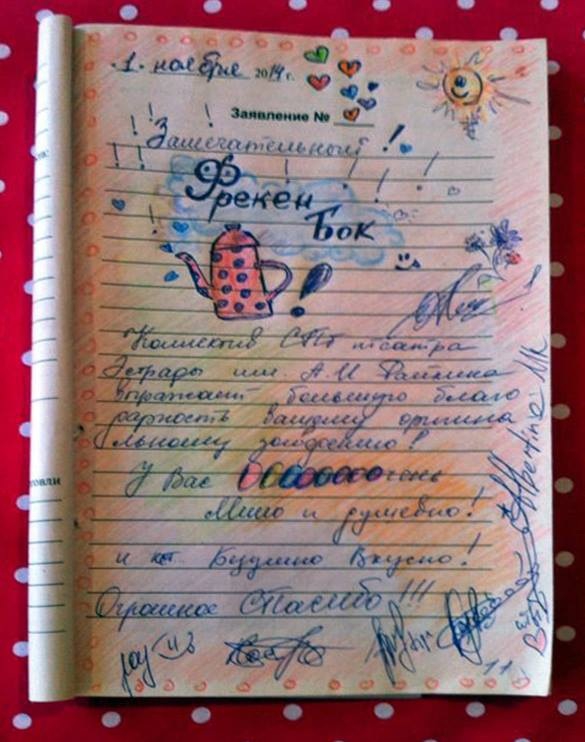 1. ноября 2014 г.
Заявление №
Замечательный!
Фрекен
Бок !
Коллектив СПб театра
Эстрады им. А. И Райкина
выражает большую благо
дарность вашему ориги­на
льному заведению!
У Вас ОООООООчень
Мило и душевно!
и Безумно Вкусно!
Огромное Спасибо!!!
Albertina. NK
овли